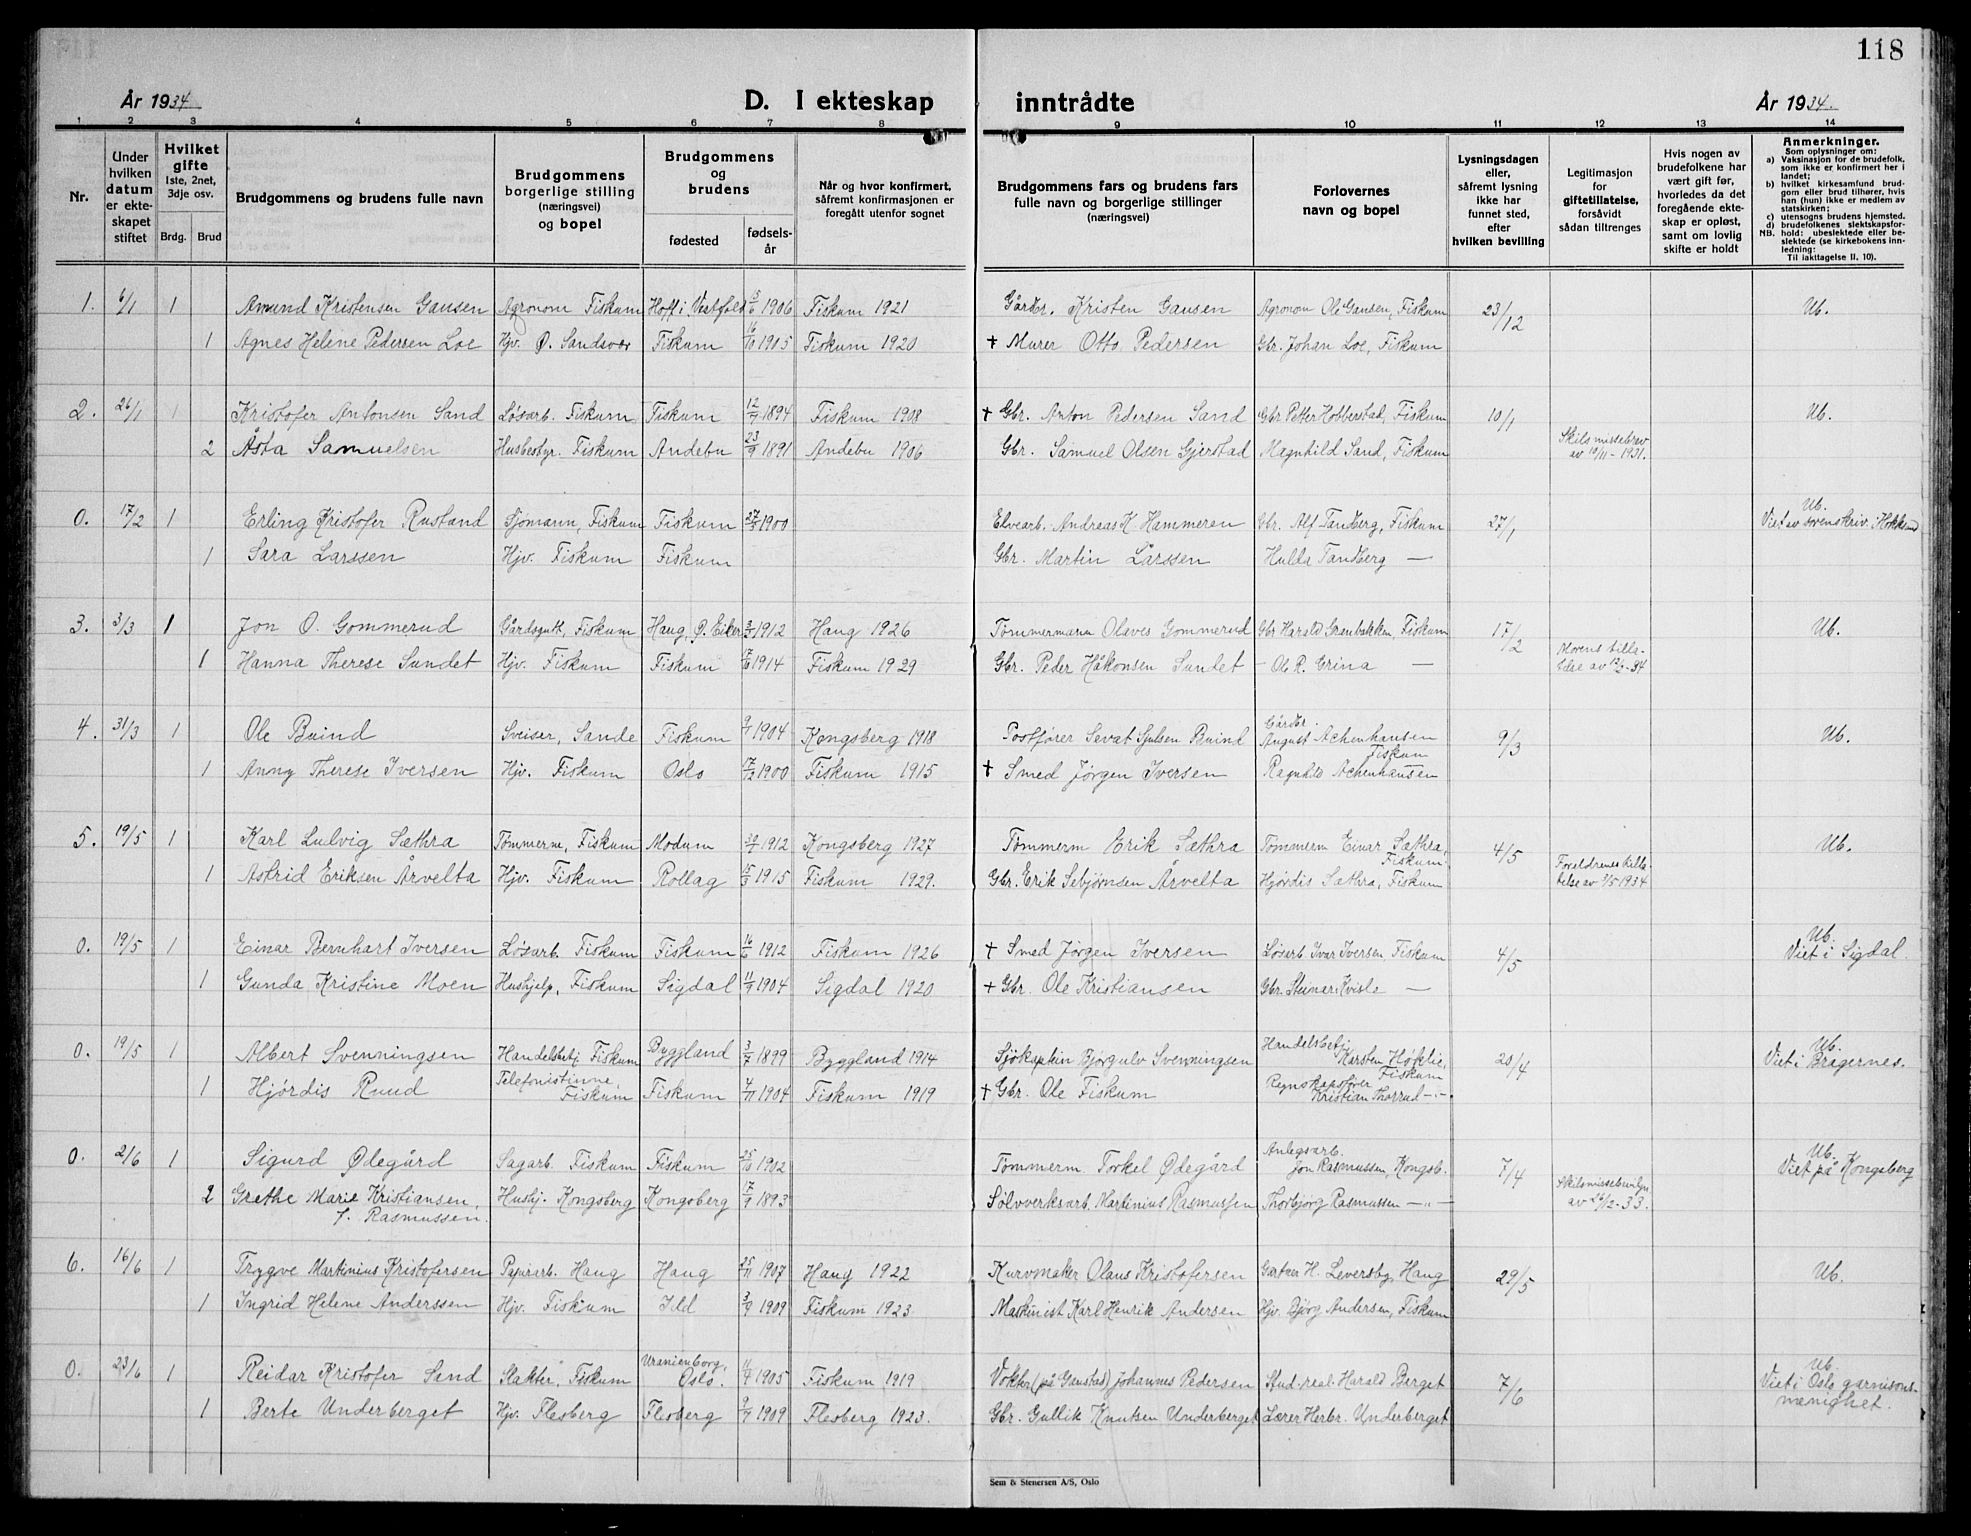 118
År 1934
D. I ekteskap inntrådte
År 1934.
1 2 3 4 5 6 7 8 9 10 11 12 13 14
Nr.
Under hvilken datum er ekteskapet stiftet
Hvilket gifte
1ste, 2net, 3dje osv.
Brdg. Brud
Brudgommens og brudens fulle navn
Brudgommens borgerlige stilling (næringsvei) og bopel
Brudgommens og brudens
fødested
fødselsår
Når og hvor konfirmert, såfremt konfirmasjonen er foregått utenfor sognet
Brudgommens fars og brudens fars fulle navn og borgerlige stillinger (næringsvei)
Forlovernes navn og bopel
Lysningsdagen eller, såfremt lysning ikke har funnet sted, efter hvilken bevilling
Legitimasjon for giftetillatelse, forsåvidt sådan tiltrenges
Hvis nogen av brudefolkene har vært gift før, hvorledes da det foregående ekteskap er opløst, samt om lovlig skifte er holdt
Anmerkninger.
Som oplysninger om:
a) Vaksinasjon for de brudefolk, som ikke er konfirmert her i landet;
b) hvilket kirkesamfund brudgom eller brud tilhører, hvis han (hun) ikke er medlem av statskirken;
c) utensogns brudens hjemsted.
d) brudefolkenes slektskapsforhold: ubeslektede eller beslektede (se kirkebokens innledning:
NB. Til iakttagelse II. 10).
1. 6/1 1 Amund Kristensen Gausen Agronom Fiskum Hof i Vestfold 5/6 1906 Fiskum 1921 Gårdbr. Kristen Gausen Agronom Ole Gausen, Fiskum 23/12 Ub.
1 Agnes Helene Pedersen Loe Hjv. Ø. Sandsvær Fiskum 16/10 1905 Fiskum 1920 + Murer Otto Pedersen Gbr. Johan Loe, Fiskum
2. 26/1 1 Kristofer Antonsen Sand Løsarb. Fiskum Fiskum 1894 Fiskum 1908 + Gbr. Anton Pedersen Sand Gbr Petter Hobberstad, Fiskum 10/1 Ub.
2 Åsta Samuelsen Husbestyr. Fiskum Andebu 23/9 1891 Andebu 1906 Gbr. Samuel Olsen Gjerstad Magnhild Sand, Fiskum Skilsmissebrev av 10/11-1931.
0. 17/2 1 Erling Kristofer Rustand Sjømann, Fiskum Fiskum 27/3 1900 Elvearb. Andreas K. Hammeren Gbr. Alf Tandberg, Fiskum 27/1 Ub. Viet av sorenskriv. i Hokksund
1 Sara Larssen Hjv. Fiskum Fiskum Gbr. Martin Larssen Hulda Tandberg —
3. 3/3 1 Jon O. Gommerud Gårdsgutt, Fiskum Haug, Ø. Eiker 1912 Haug 1926 Tømmermann Olaves Gommerud Gbr Harald Granbakken, Fiskum 17/2 Ub.
1 Hanna Therese Sundet Hjv. Fiskum Fiskum 17/6 1914 Fiskum 1929 Gbr. Peder Håkonsen Sundet — Ole R. Grina — Morens tillatelse av 12/2-34
4. 31/3 1 Ole Buind Sveiser, Sande Fiskum 1904 Kongsberg 1918 Postfører Sevat Sjulsen Buind Gårdbr. August Achenhausen Fiskum 9/3 Ub.
1 Anny Therese Iversen Hjv. Fiskum Oslo 17/12 1900 Fiskum 1915 + Smed Jørgen Iversen Ragnhild Achenhausen
5. 19/5 1 Karl Lulvig Sæthra Tømmerm, Fiskum Modum 1912 Kongsberg 1927 Tømmerm Erik Sæthra Tømmerm Einar Sæthra, Fiskum. 4/5 Ub.
1 Astrid Eriksen Årvelta Hjv. Fiskum Rollag 15/3 1915 Fiskum 1929. Gbr. Erik Sebjørnsen Årvelta Hjørdis Sæthra, Fiskum Foreldrenes tillatelse av 3/5 1934
0. 19/5 1 Einar Bernhart Iversen Løsarb. Fiskum Fiskum 16/6 1912 Fiskum 1926 + Smed Jørgen Iversen Løsarb Ivar Iversen, Fiskum 4/5 Ub. Viet i Sigdal.
1 Gunda Kristine Moen Hushjelp, Fiskum Sigdal 11/9 1904 Sigdal 1920 + Gbr. Ole Kristiansen Gbr. Steinar Kvisle —
0. 19/5 1 Albert Svenningsen Handelsbetj. Fiskum Byggland 3/7 1899 Byggland 1914 Sjøkaptein Bjørgulv Svenningsen Handelsbetj. Karsten Høklie, Fiskum 20/4 Ub. Viet i Bragernes.
1 Hjørdis Ruud Telefonistinne, Fiskum Fiskum 4/11 1904 Fiskum 1919 + Gbr. Ole Fiskum Regnskapsfører Kristian Thorrud —"—
0. 2/6 1 Sigurd Ødegård Sagarb. Fiskum Fiskum 25/10 1902 Tømmerm. Torkel Ødegård Anlegsarb. Jon Rasmussen, Kongsb. 7/4 Ub. Viet på Kongsberg
2 Grethe Marie Kristiansen, f. Rasmussen. Hushj. Kongsberg Kongsberg 17/9 1893 Sølvverksarb. Martinius Rasmussen Thorbjørg Rasmussen —"— Skilsmissebeviln av 26/2-33.
6. 16/6 1 Trygve Martinius Kristofersen Papirarb. Haug Haug 25/11 1907 Haug 1922 Kurvmaker Olaus Kristofersen Gartner H. Leversby, Haug 29/5 Ub.
1 Ingrid Helene Anderssen Hjv. Fiskum Idd 3/9 1909 Fiskum 1923. Maskinist Karl Henrik Andersen Hjv. Bjørg Andersen, Fiskum
0. 23/6 1 Reidar Kristofer Sand Slakter, Fiskum Uranienborg, Oslo. 1905 Fiskum 1919 Vokter (på Gaustad) Johannes Pedersen Stud. real. Harald Berget 7/6 Ub. Viet i Oslo garnisonsmenighet.
1 Berte Underberget Hjv. Flesberg Flesberg 1909 Flesberg 1923. Gbr. Gullik Knutsen Underberget Lærer Herbr. Underberget
Sem & Stenersen A/S, Oslo